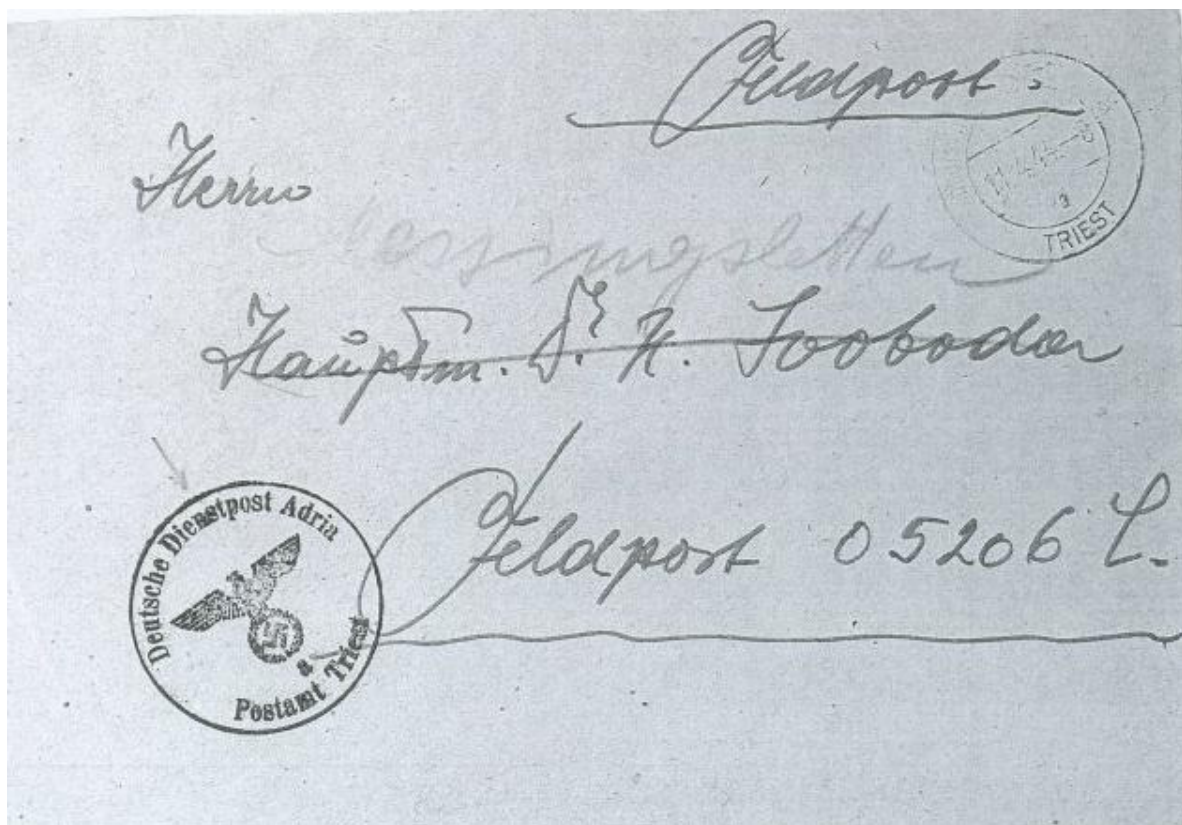 Feldpost.
TRIEST
Herrn
Hauptm. Dr. H. Svoboda
Feldpost 05206 L.
Deutsche Dienstpost Adria
a
Postamt Triest